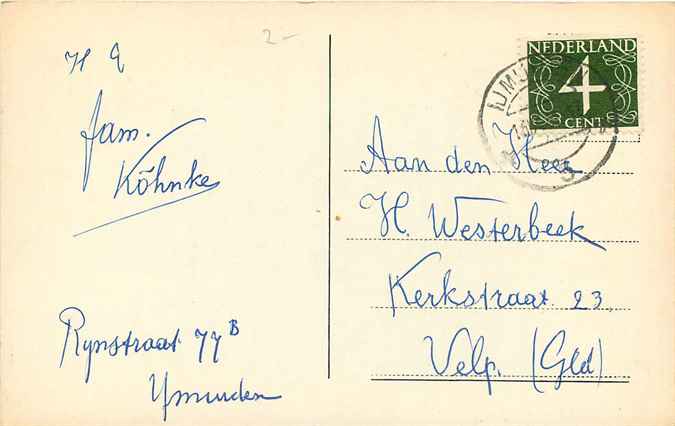 2-
H G
fam.
Köhnke
Rynstraat 77 B
Ymuiden
NEDERLAND
4
CENT
Aan den Heer
H. Westerbeek
Kerkstraat 23
Velp. (Gld)